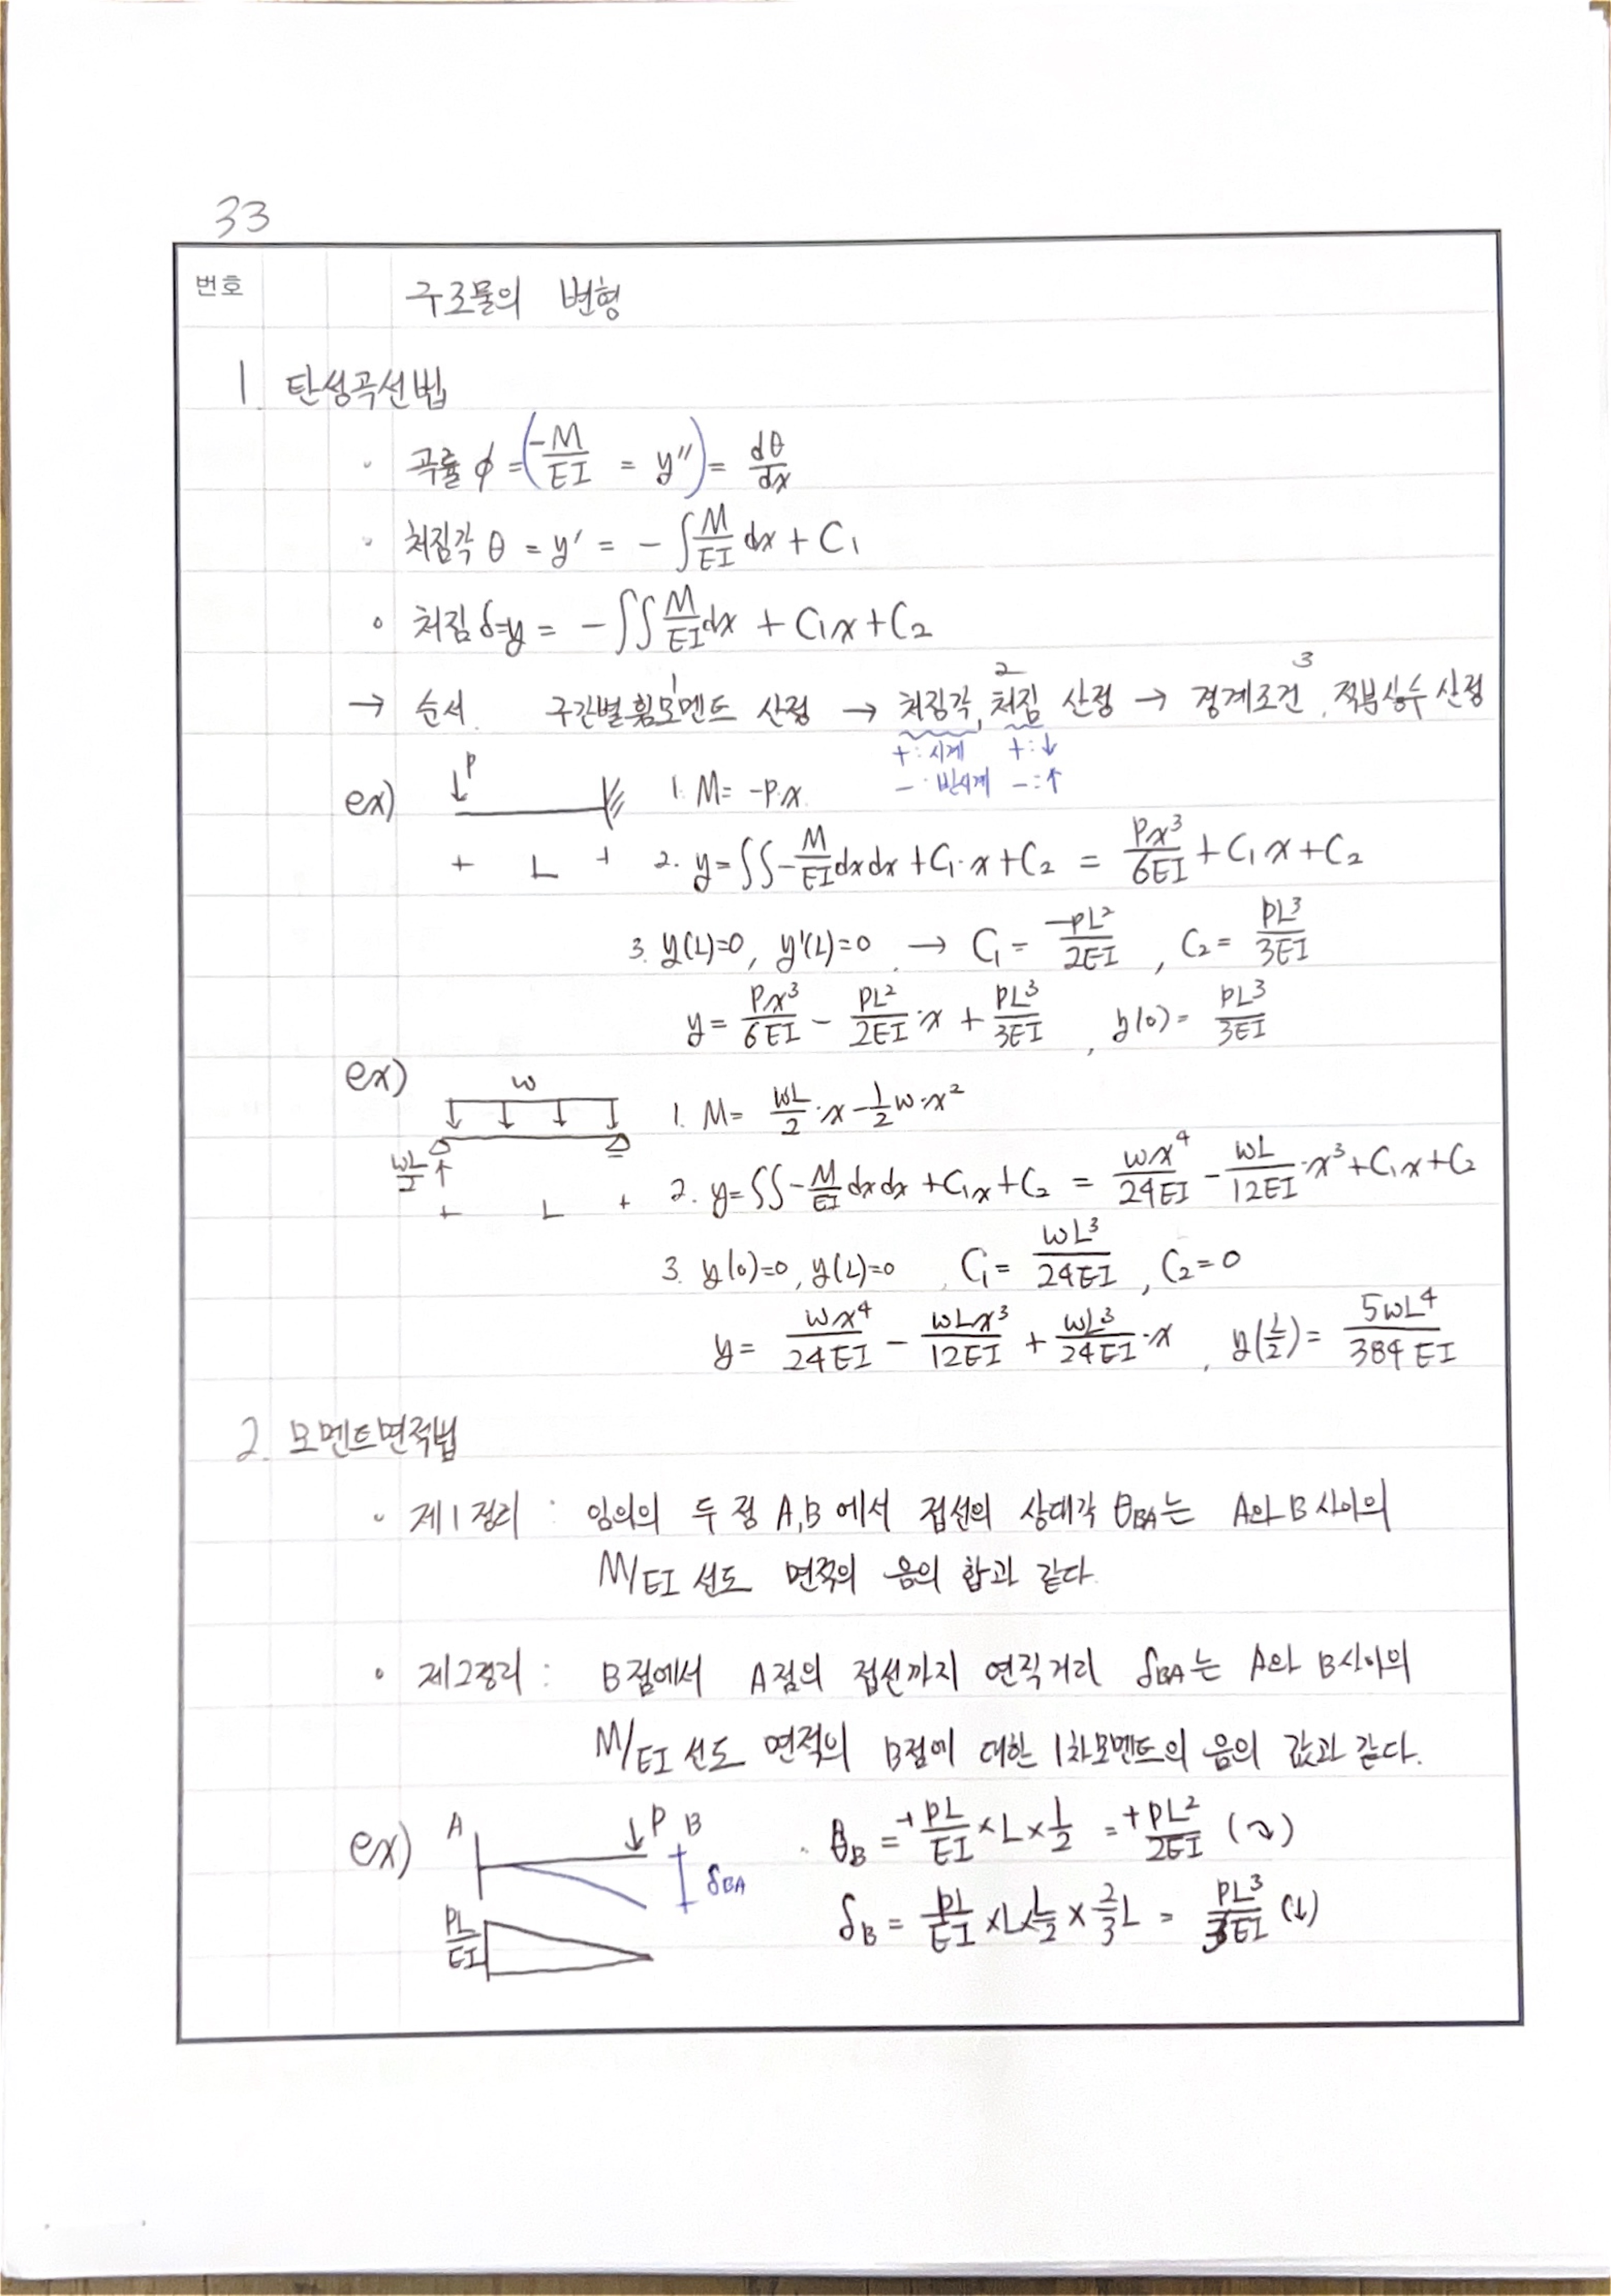 33
번호
구조물의 변형
1. 탄성곡선법
· 곡률 ϕ = (-M/EI = y'') = dθ/dx
· 처짐각 θ = y' = - ∫ M/EI dx + C₁
∘ 처짐 δ=y = - ∫∫ M/EI dx + C₁x + C₂
1 2 3
→ 순서. 구간별 휨모멘트 산정 → 처짐각, 처짐 산정 → 경계조건, 적분상수 산정
+ : 시계 + : ↓
- : 반시계 - : ↑
ex) P 1. M = -P·x
+ L + 2. y = ∫∫ - M/EI dx dx + C₁·x + C₂ = Px³/6EI + C₁x + C₂
3. y(L)=0, y'(L)=0 → C₁ = -PL²/2EI , C₂ = PL³/3EI
y = Px³/6EI - PL²/2EI ·x + PL³/3EI , y(0) = PL³/3EI
ex) w 1. M = wL/2 ·x - 1/2 w·x²
wL/2 ↑
+ L + 2. y = ∫∫ - M/EI dx dx + C₁x + C₂ = wx⁴/24EI - wL/12EI ·x³ + C₁x + C₂
3. y(0)=0, y(L)=0 , C₁ = wL³/24EI , C₂ = 0
y = wx⁴/24EI - wLx³/12EI + wL³/24EI ·x , y(L/2) = 5wL⁴/384EI
2. 모멘트면적법
· 제1정리 : 임의의 두 점 A,B에서 접선의 상대각 θBA는 A와 B사이의
M/EI 선도 면적의 음의 합과 같다.
∘ 제2정리 : B점에서 A점의 접선까지 연직거리 δBA는 A와 B사이의
M/EI 선도 면적의 B점에 대한 1차모멘트의 음의 값과 같다.
ex) A P B δBA · θB = + PL/EI × L × 1/2 = + PL²/2EI (↷)
PL/EI δB = PL/EI × L × 1/2 × 2/3 L = PL³/3EI (↓)